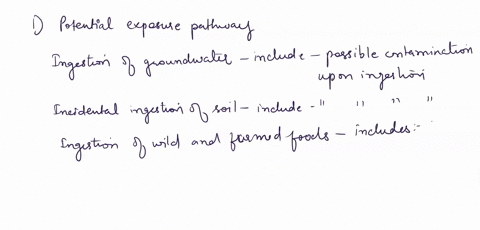 1) Potential exposure pathway
Ingestion of groundwater - include - possible contamination
upon ingestion
Incidental ingestion of soil - include - " " " "
Ingestion of wild and farmed foods - includes:-